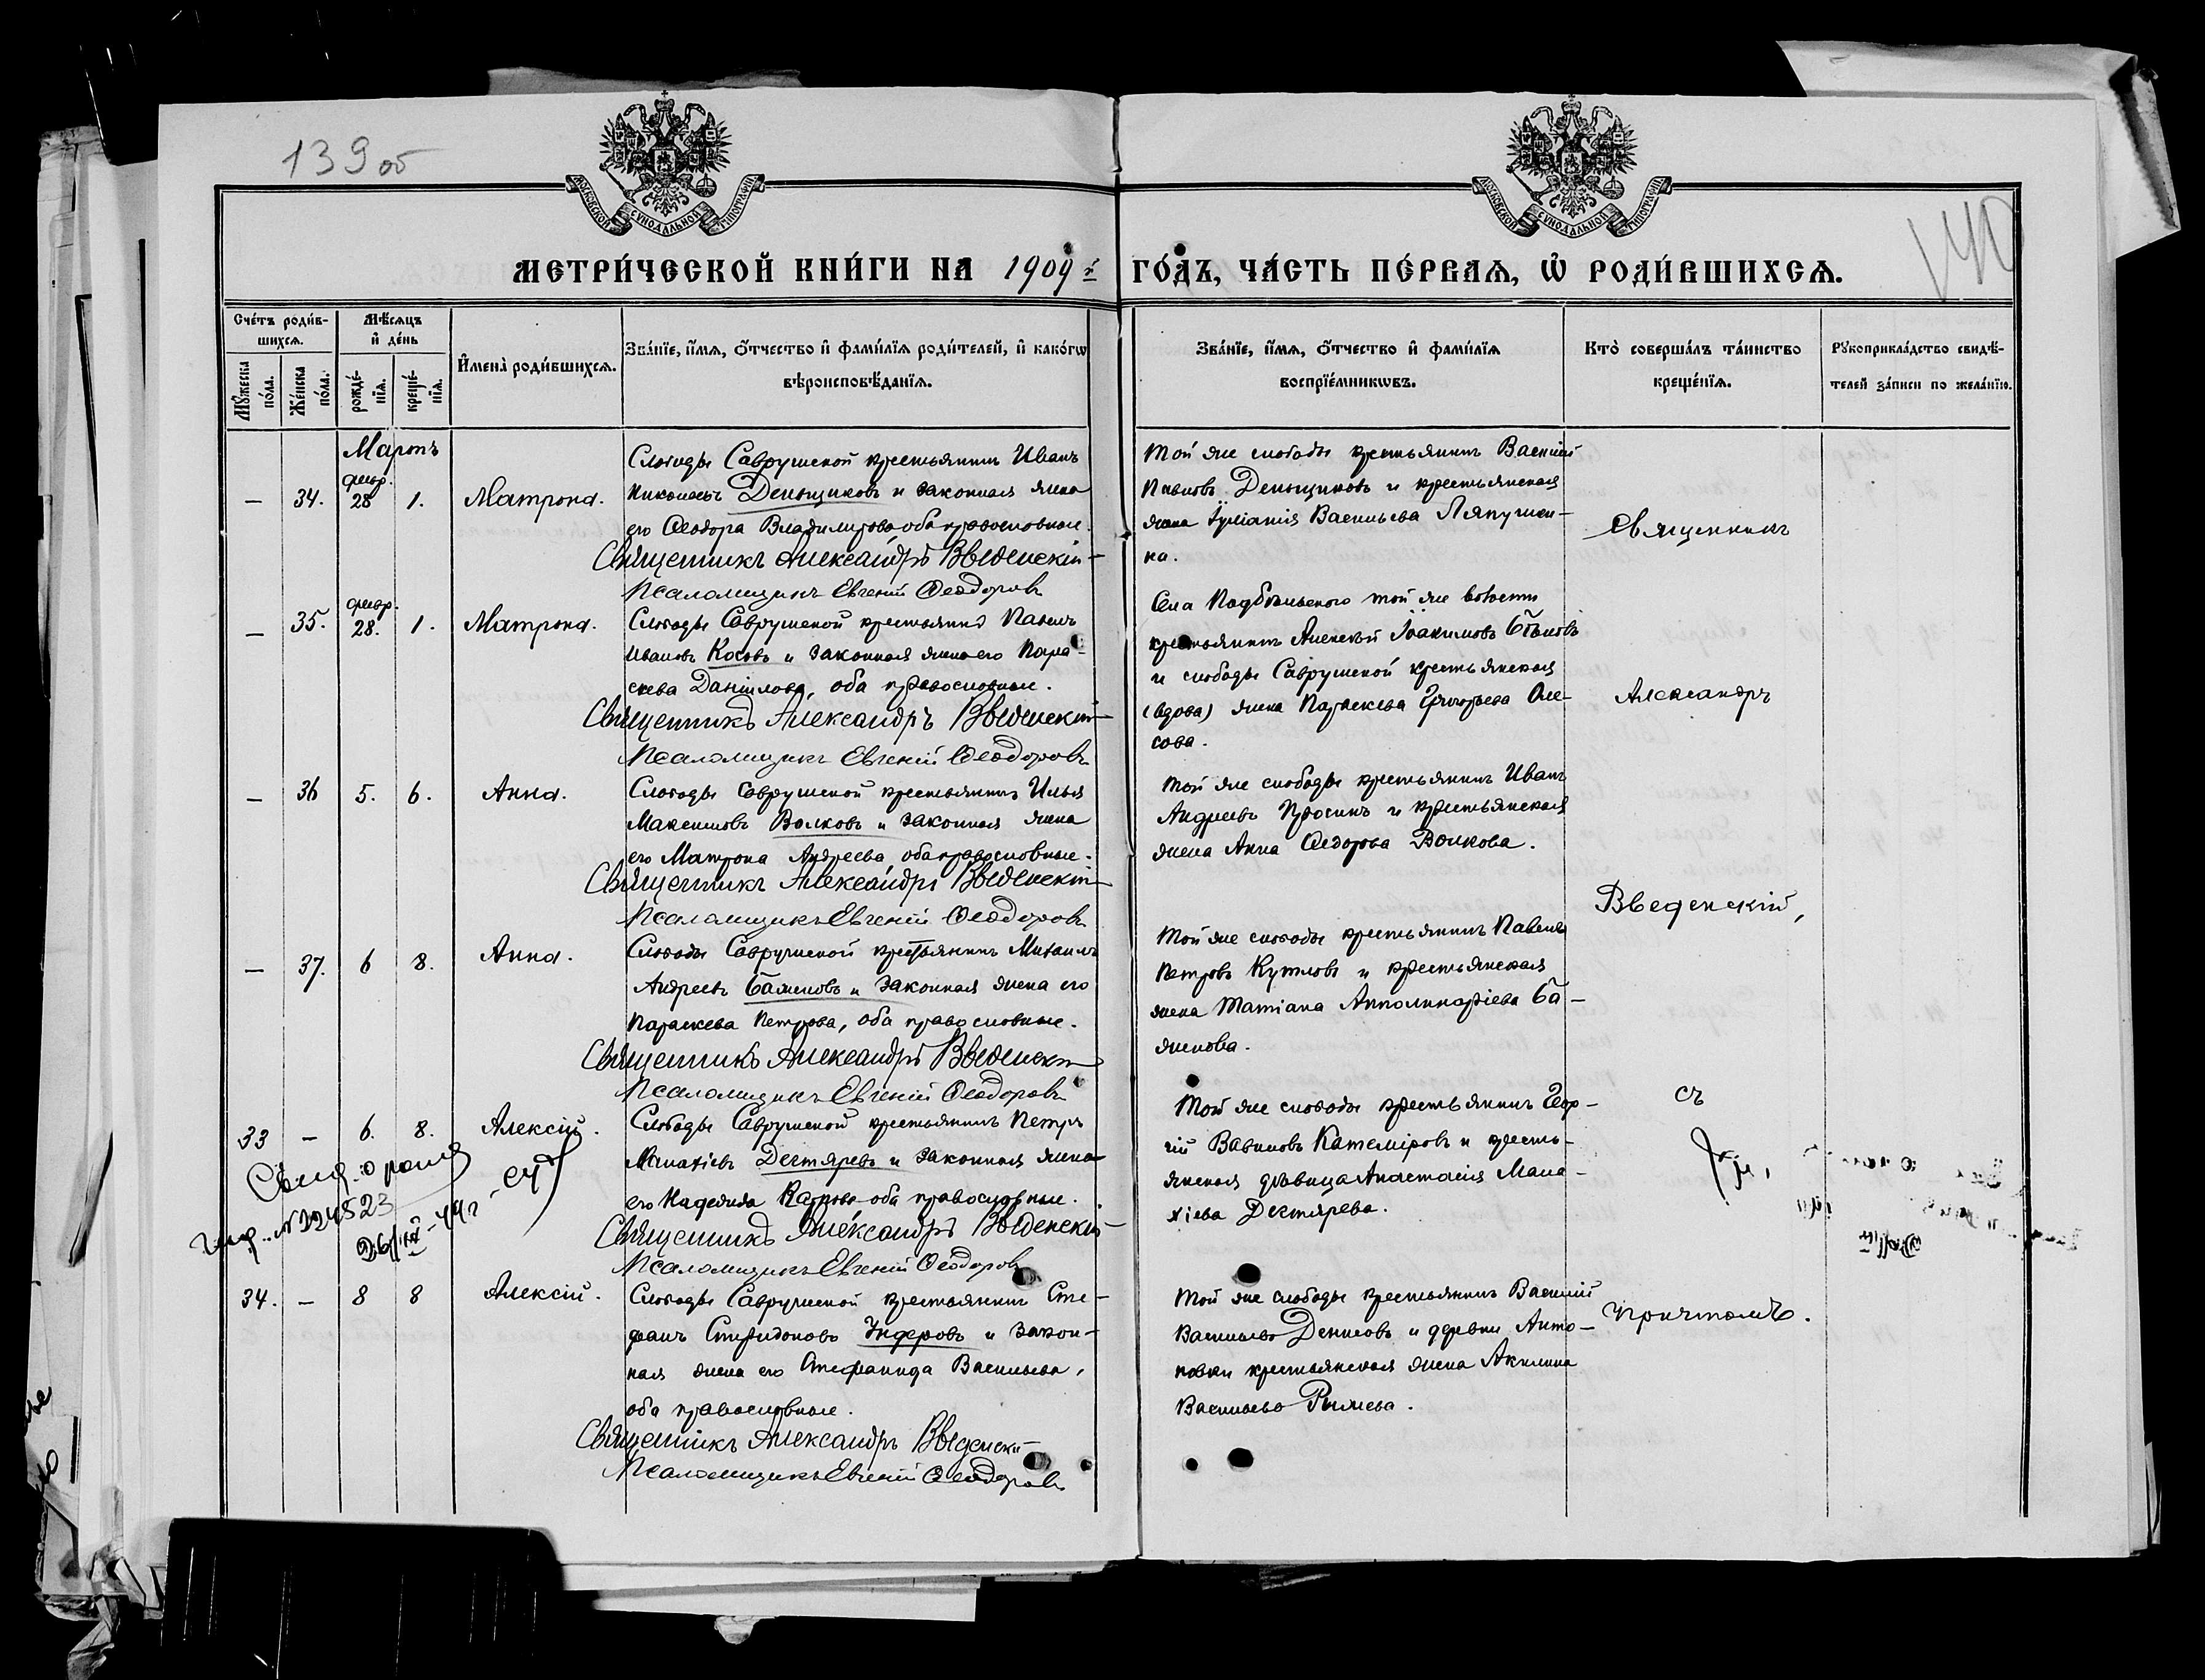 139 об
140
МОСКОВСКОЙ СѴНОДАЛЬНОЙ ТІПОГРАФІИ
МОСКОВСКОЙ СѴНОДАЛЬНОЙ ТІПОГРАФІИ
МЕТРИ́ЧЕСКОЙ КНИ́ГИ НА 1909 й ГО́ДЪ, ЧА́СТЬ ПЕ́РВАѦ, Ѿ РОДИ́ВШИХСѦ.
Сче́тъ роди́в-
шихсѧ.
Мꙋ́жеска по́ла.
Же́нска по́ла.
Мѣ́сѧцъ
и҆ де́нь
рожде́-
нїѧ.
креще́-
нїѧ.
И҆мена̀ роди́вшихсѧ.
Зва́нїе, и҆́мѧ, ѻ҆́тчество и҆ фами́лїѧ роди́телей, и҆ како́гѡ
вѣроисповѣ́данїѧ.
Зва́нїе, и҆́мѧ, ѻ҆́тчество и҆ фами́лїѧ
воспрїе́мникѡвъ.
Кто̀ соверша́лъ та́инство
креще́нїѧ.
Рꙋкоприкла́дство свидѣ́-
телей за́писи по жела́нїю.
Мартъ
февр.
— 34. 28 1. Матрона.
Слободы Саврушской крестьянинъ Иванъ
Николаевъ Деньщиковъ и законная жена
его Ѳеодора Владимірова оба православные.
Священникъ Александръ Введенскій
Псаломщикъ Евгеній Ѳеодоровъ
Той же слободы крестьянинъ Василій
Павловъ Деньщиковъ и крестьянская
жена Іуліанія Васильева Ляпушки-
на.
февр.
— 35. 28. 1. Матрона.
Слободы Саврушской крестьянинъ Павелъ
Ивановъ Косовъ и законная жена его Пара-
скева Даніилова, оба православные.
Священникъ Александръ Введенскій
Псаломщикъ Евгеній Ѳеодоровъ
Села Подбѣльскаго той же волости
крестьянинъ Алексѣй Іоакимовъ Бѣловъ
и слободы Саврушской крестьянская
(вдова) жена Параскева Григорьева Оле-
сова.
— 36 5. 6. Анна.
Слободы Саврушской крестьянинъ Илья
Максимовъ Волковъ и законная жена
его Матрона Андреева, оба православные.
Священникъ Александръ Введенскій
Псаломщикъ Евгеній Ѳеодоровъ
Той же слободы крестьянинъ Иванъ
Андреевъ Просинъ и крестьянская
жена Анна Ѳедорова Волкова.
— 37. 6 8. Анна.
Слободы Саврушской крестьянинъ Михаилъ
Андреевъ Баженовъ и законная жена его
Параскева Петрова, оба православные.
Священникъ Александръ Введенскій
Псаломщикъ Евгеній Ѳеодоровъ
Той же слободы крестьянинъ Павелъ
Петровъ Кутловъ и крестьянская
жена Татіана Апполинаріева Ба-
женова.
33 — 6. 8. Алексій.
Слободы Саврушской крестьянинъ Петръ
Малахіевъ Дегтяревъ и законная жена
его Надежда Карпова оба православные.
Священникъ Александръ Введенскій
Псаломщикъ Евгеній Ѳеодоровъ
Той же слободы крестьянинъ Геор-
гій Вавиловъ Катеміровъ и кресть-
янская дѣвица Анастасія Мала-
хіева Дегтярева.
34. — 8 8 Алексій.
Слободы Саврушской крестьянинъ Сте-
фанъ Спиридоновъ Унферовъ и закон-
ная жена его Стефанида Васильева,
оба православные.
Священникъ Александръ Введенскій
Псаломщикъ Евгеній Ѳеодоровъ
Той же слободы крестьянинъ Василій
Васильевъ Денисовъ и деревни Анто-
новки крестьянская жена Акилина
Васильева Рылева.
Священникъ
Александръ
Введенскій,
съ
причтомъ.